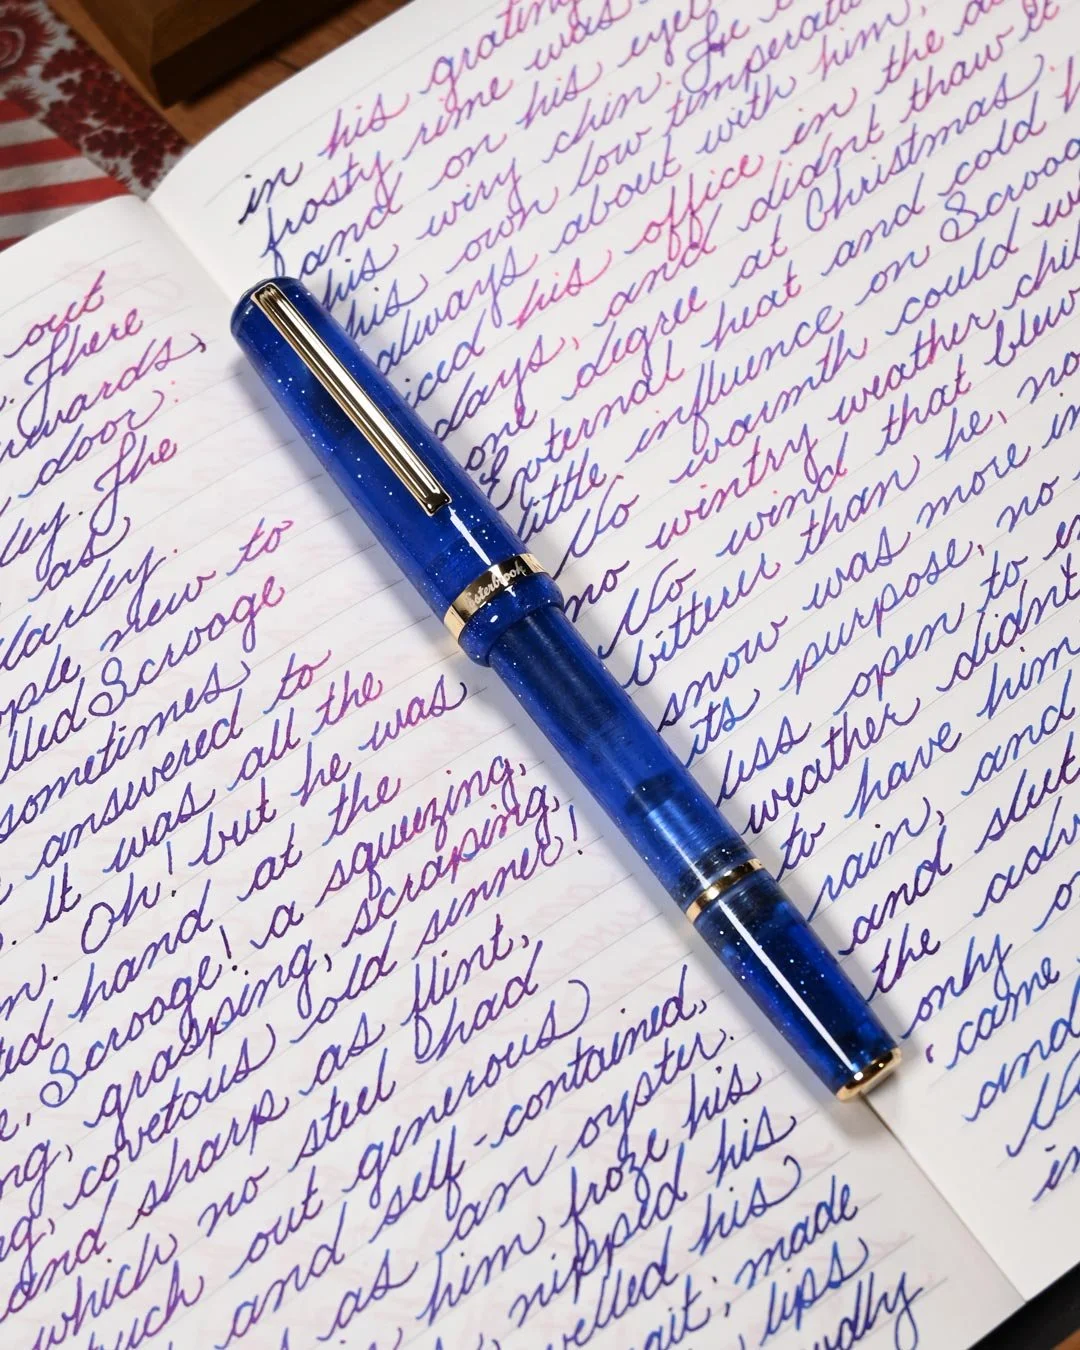 out
. There
wards,
door.
ley. The
as
Marley.
ople new to
lled Scrooge
sometimes
answered to
. It was all the
Oh! but he was
ted hand at the
e, Scrooge! a squeezing,
ng, grasping, scraping,
g, covetous old sinner!
and sharp as flint,
which no steel had
uck out generous
and self-contained,
as an oyster.
him froze his
, nipped his
velled his
gait; made
lips
udly
in his grating
frosty rime was
and on his eyeb
his wiry chin. He c
his own low temperatu
always about with him,
iced his office in the do
days, and didnt thaw it
one degree at Christmas.
External heat and cold h
little influence on Scroog
No warmth could wa
no wintry weather chil
No wind that blew
bitterer than he, no
snow was more in
its purpose, no
less open to en
weather didnt
to have him
rain, and
and sleet
the adv
only o
"came
and
No
in
Esterbrook